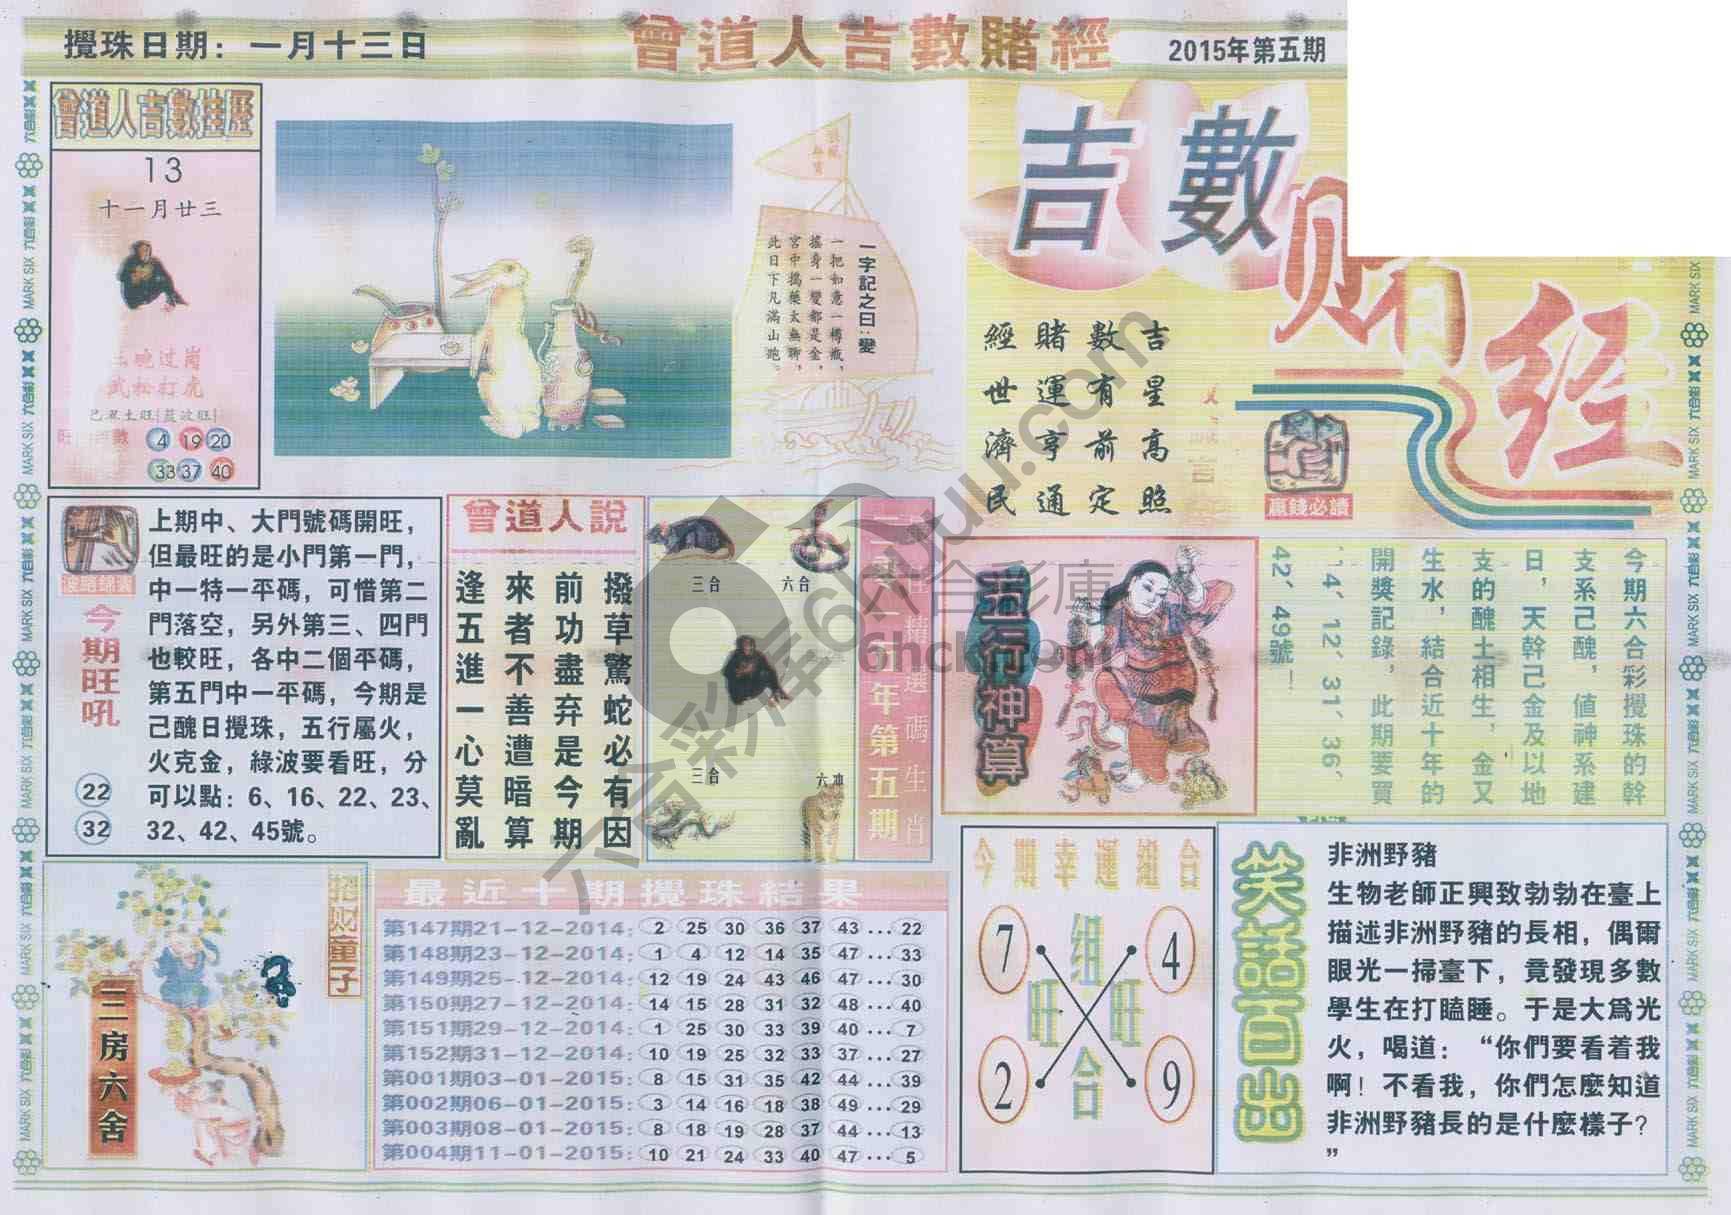 攪珠日期：一月十三日
曾道人吉數賭經
2015年第五期
曾道人吉數挂歷
13
十一月廿三
三晚过崗
武松打虎
4 19 20
33 37 40
一字記之曰：變
一把如意一樽瓶，
搖身一變都是金，
宮中搗藥太無聊，
此日下凡滿山跑。
吉數
赌经
吉星高照
數有前定
賭運亨通
經世濟民
贏錢必讀
今期旺吼
22
32
上期中、大門號碼開旺，
但最旺的是小門第一門，
中一特一平碼，可惜第二
門落空，另外第三、四門
也較旺，各中二個平碼，
第五門中一平碼，今期是
己醜日攪珠，五行屬火，
火克金，綠波要看旺，分
可以點：6、16、22、23、
32、42、45號。
曾道人說
撥草驚蛇必有因
前功盡弃是今期
來者不善遭暗算
逢五進一心莫亂
三合
六合
三合
六冲
五行神算
今期六合彩攪珠的幹
支系己醜，值神系建
日，天幹己金及以地
支的醜土相生，金又
生水，結合近十年的
開獎記錄，此期要買
42、49號！
招财童子
三房六舍
最近十期攪珠結果
第147期21-12-2014: 2 25 30 36 37 43...22
第148期23-12-2014: 1 4 12 14 35 47...33
第149期25-12-2014: 12 19 24 43 46 47...30
第150期27-12-2014: 14 15 28 31 32 48...40
第151期29-12-2014: 1 25 30 33 39 40...7
第152期31-12-2014: 10 19 25 32 33 37...27
第001期03-01-2015: 8 15 31 35 42 44...39
第002期06-01-2015: 3 14 16 18 38 49...29
第003期08-01-2015: 8 18 19 28 37 44...13
第004期11-01-2015: 10 21 24 33 40 47...5
今期幸運組合
7 组 4
旺 旺
2 合 9
笑話百出
非洲野豬
生物老師正興致勃勃在臺上
描述非洲野豬的長相，偶爾
眼光一掃臺下，竟發現多數
學生在打瞌睡。于是大爲光
火，喝道：“你們要看着我
啊！不看我，你們怎麼知道
非洲野豬長的是什麼樣子？
”
MARK SIX 六合彩
六合彩庫